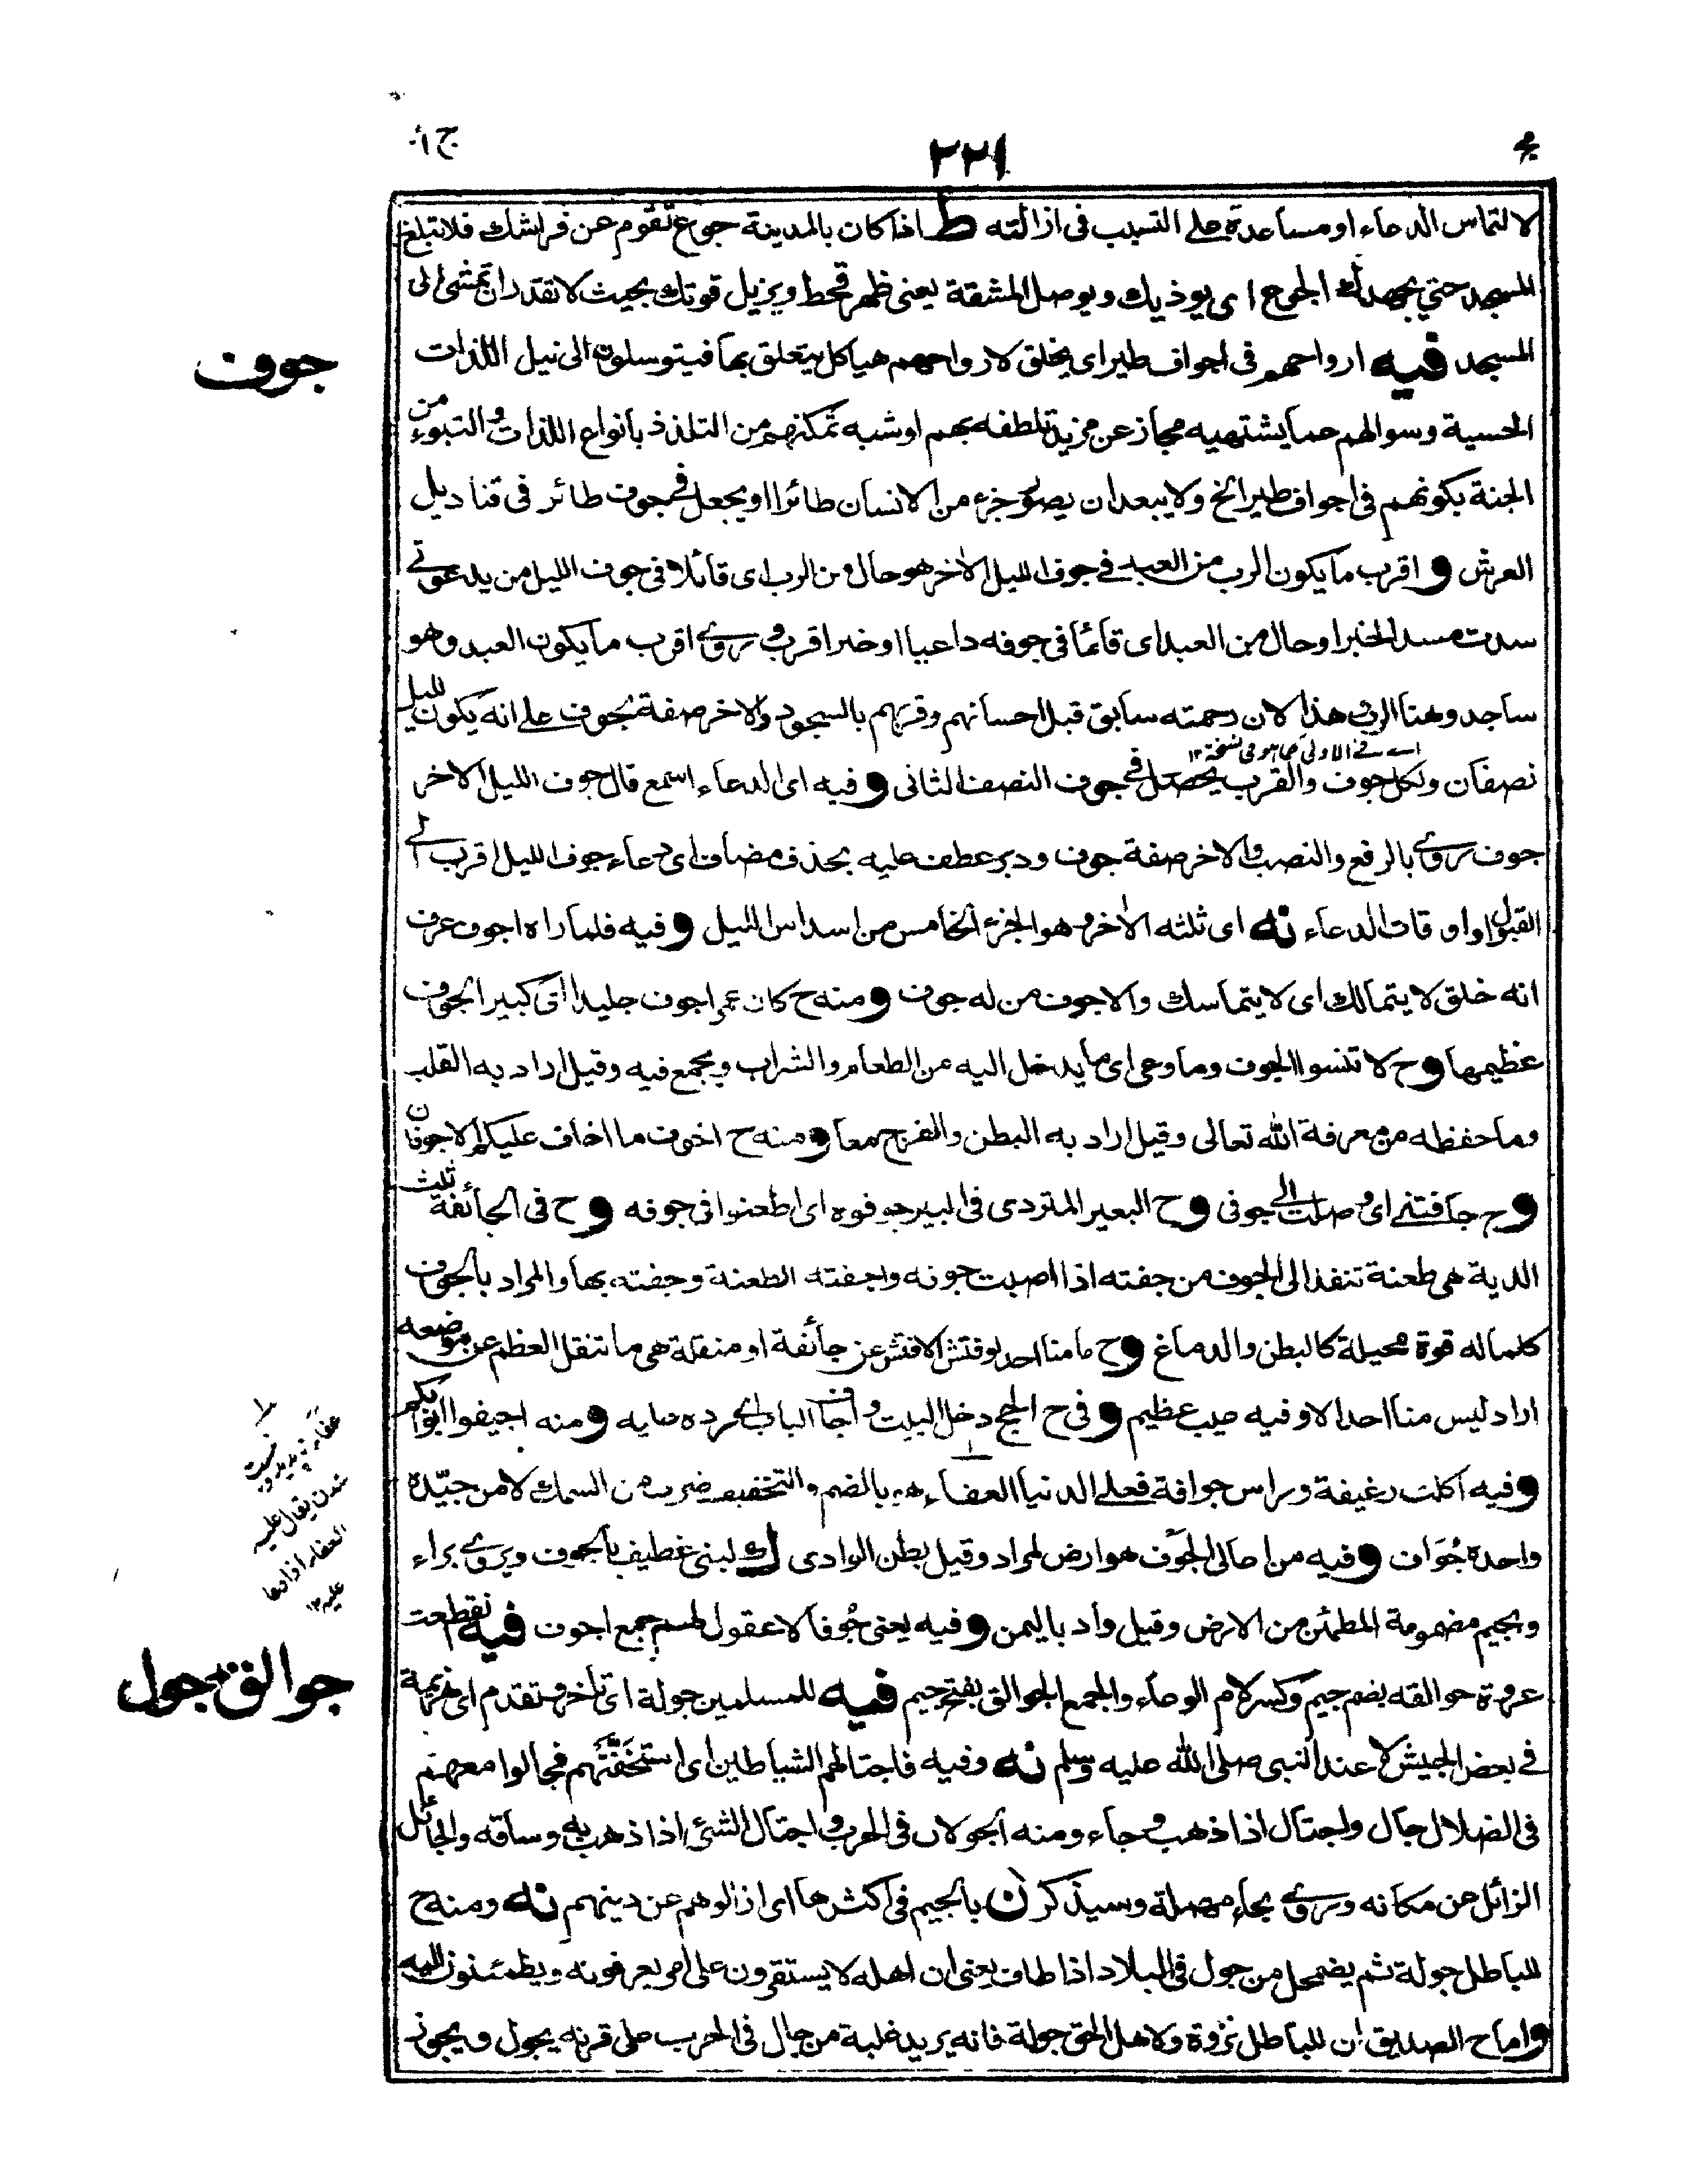 ج ١
٢٢١
لالتماس الدعاء او مساعدة على التسبب فى ازالته ط اذا كان بالمدينة جوع تقوم عن فراشك فلا تبلغ
المسجد حتى يجهدك الجوع اى يوذيك ويوصل المشقة يعنى ظهر قحط ويزيل قوتك بحيث لا تقدر ان تمشى الى
المسجد فيه ارواحهم فى اجواف طير اى يخلق لارواحهم هياكل يتعلق بها فيتوسلون الى نيل اللذات
جوف
الحسية وسوالهم عما يشتهيه مجاز عن مزيد تلطفه بهم او شبه تمكنهم من التلذذ بانواع اللذات والتبوء من
الجنة بكونهم فى اجواف طير الخ ولا يبعد ان يصور جزء من الانسان طائرا او يجعل فى جوف طائر فى قناديل
العرش و اقرب ما يكون الرب من العبد فى جوف الليل الاخر هو حال من الرب اى قائلا فى جوف الليل من يدعونى
سدت مسد الخبر او حال من العبد اى قائما فى جوفه داعيا او خبر اقرب وروى اقرب ما يكون العبد وهو
ساجد وهنا الرب هذا لان رحمته سابق قبل احسانهم وقربهم بالسجود والاخر صفة لجوف على انه يكون لليل
اى فى الاولى كما هو فى نسخة ١٢
نصفان ولكل جوف والقرب يحصل فى جوف النصف الثانى و فيه اى الدعاء اسمع قال جوف الليل الاخر
جوف روى بالرفع والنصب والاخر صفة جوف ودبر عطف عليه بحذف مضاف اى دعاء جوف الليل اقرب الى
القبول او اوقات الدعاء نه اى ثلثه الاخر وهو الجزء الخامس من اسداس الليل و فيه فلما راه اجوف عرف
انه خلق لا يتمالك اى لا يتماسك والاجوف من له جوف و منه ح كان عمر اجوف جليدا اى كبير الجوف
عظيمها و ح لا تنسوا الجوف وما وعى اى ما يدخل اليه من الطعام والشراب ويجمع فيه وقيل اراد به القلب
وما حفظه من معرفة الله تعالى وقيل اراد به البطن والفرج معا و منه ح اخوف ما اخاف عليكم الاجوفان
و ح جافتنى اى وصلت الى جوفى و ح البعير المتردى فى البير جوفوه اى اطعنوا فى جوفه و ح فى الجائفة ثلث
الدية هى طعنة تنفذ الى الجوف من جفته اذا اصبت جوفه واجفته الطعنة وجفته بها والمراد بالجوف
كلما له قوة محيلة كالبطن والدماغ و ح ما منا احد لو فتش الا فتش عن جائفة او منقلة هى ما تنقل العظم عن موضعه
اراد ليس منا احد الا وفيه عيب عظيم و فى ح الحج دخل البيت و اجاف الباب اى رده عليه و منه اجيفوا ابوابكم
و فيه اكلت رغيفة وراس جوافة فعلى الدنيا العفاء هو بالضم والتخفيف ضرب من السمك لا من جيده
واحدة جواف و فيه من اعالى الجوف هو ارض لمراد وقيل بطن الوادى ك لبنى غطيف بالجوف ويروى براء
وبجيم مضمومة المطمئن من الارض وقيل واد باليمن و فيه يعنى جوفا لا عقول لهم جمع اجوف فيه نقطعت
عروة جوالقه بضم جيم وكسر لام الوعاء والجمع الجوالق بفتح جيم فيه للمسلمين جولة اى تاخر وتقدم اى هزيمة
جوالق جول
فى بعض الجيش لا عند النبى صلى الله عليه وسلم نه وفيه فاجتالهم الشياطين اى استخفتهم فجالوا معهم
فى الضلال جال واجتال اذا ذهب وجاء ومنه الجولان فى الحرب واجتال الشئ اذا ذهب به وساقه والجائل
الزائل عن مكانه وروى بحاء مهملة وسيذكر ن بالجيم فى اكثرها اى ازالوهم عن دينهم نه ومنه ح
للباطل جولة ثم يضمحل من جول فى البلاد اذا طاف يعنى ان اهله لا يستقرون على امر يعرفونه ويطمئنون اليه
واما ح الصديق ان للباطل نزوة ولاهل الحق جولة فانه يريد غلبة من جال فى الحرب على قرنه يجول ويجوز